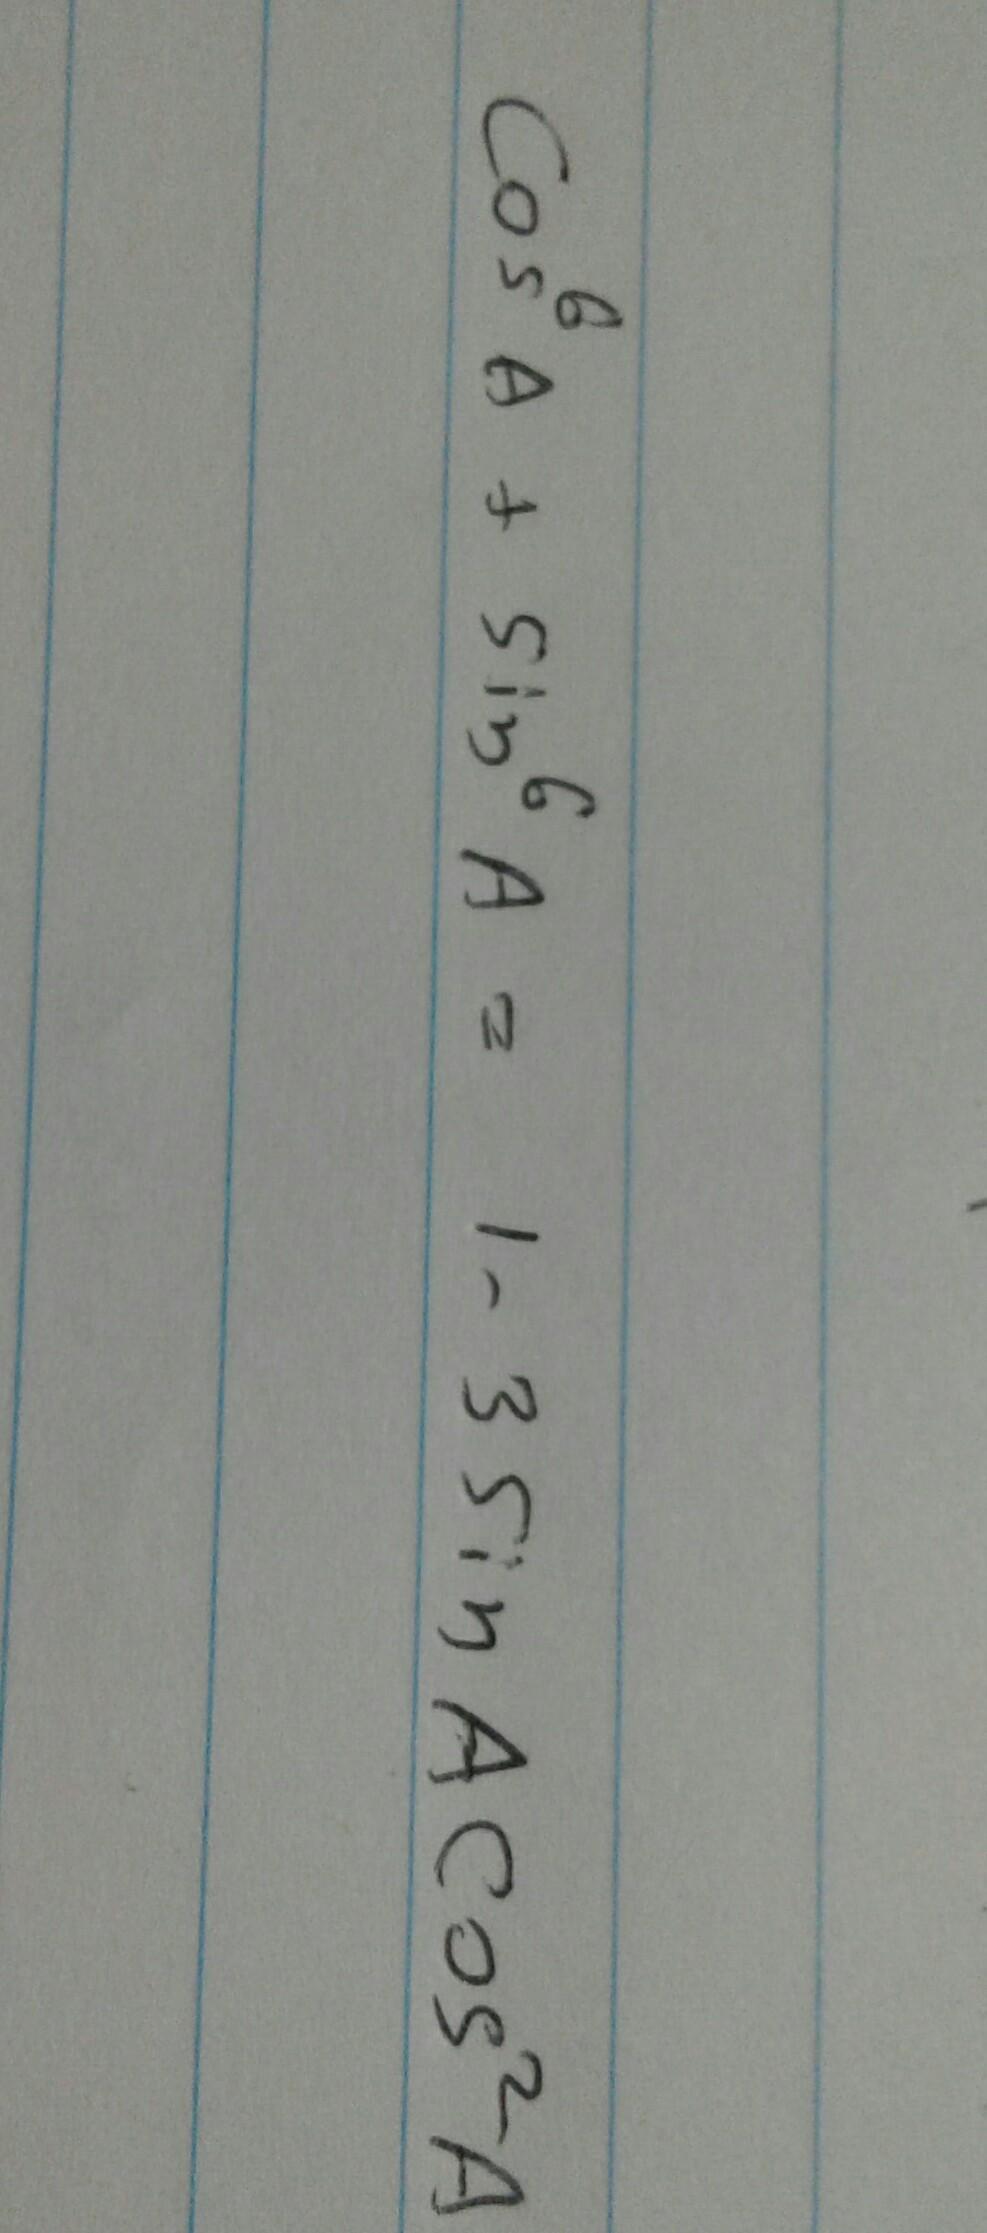 Cos⁶A + Sin⁶A = 1 - 3 Sin A Cos²A